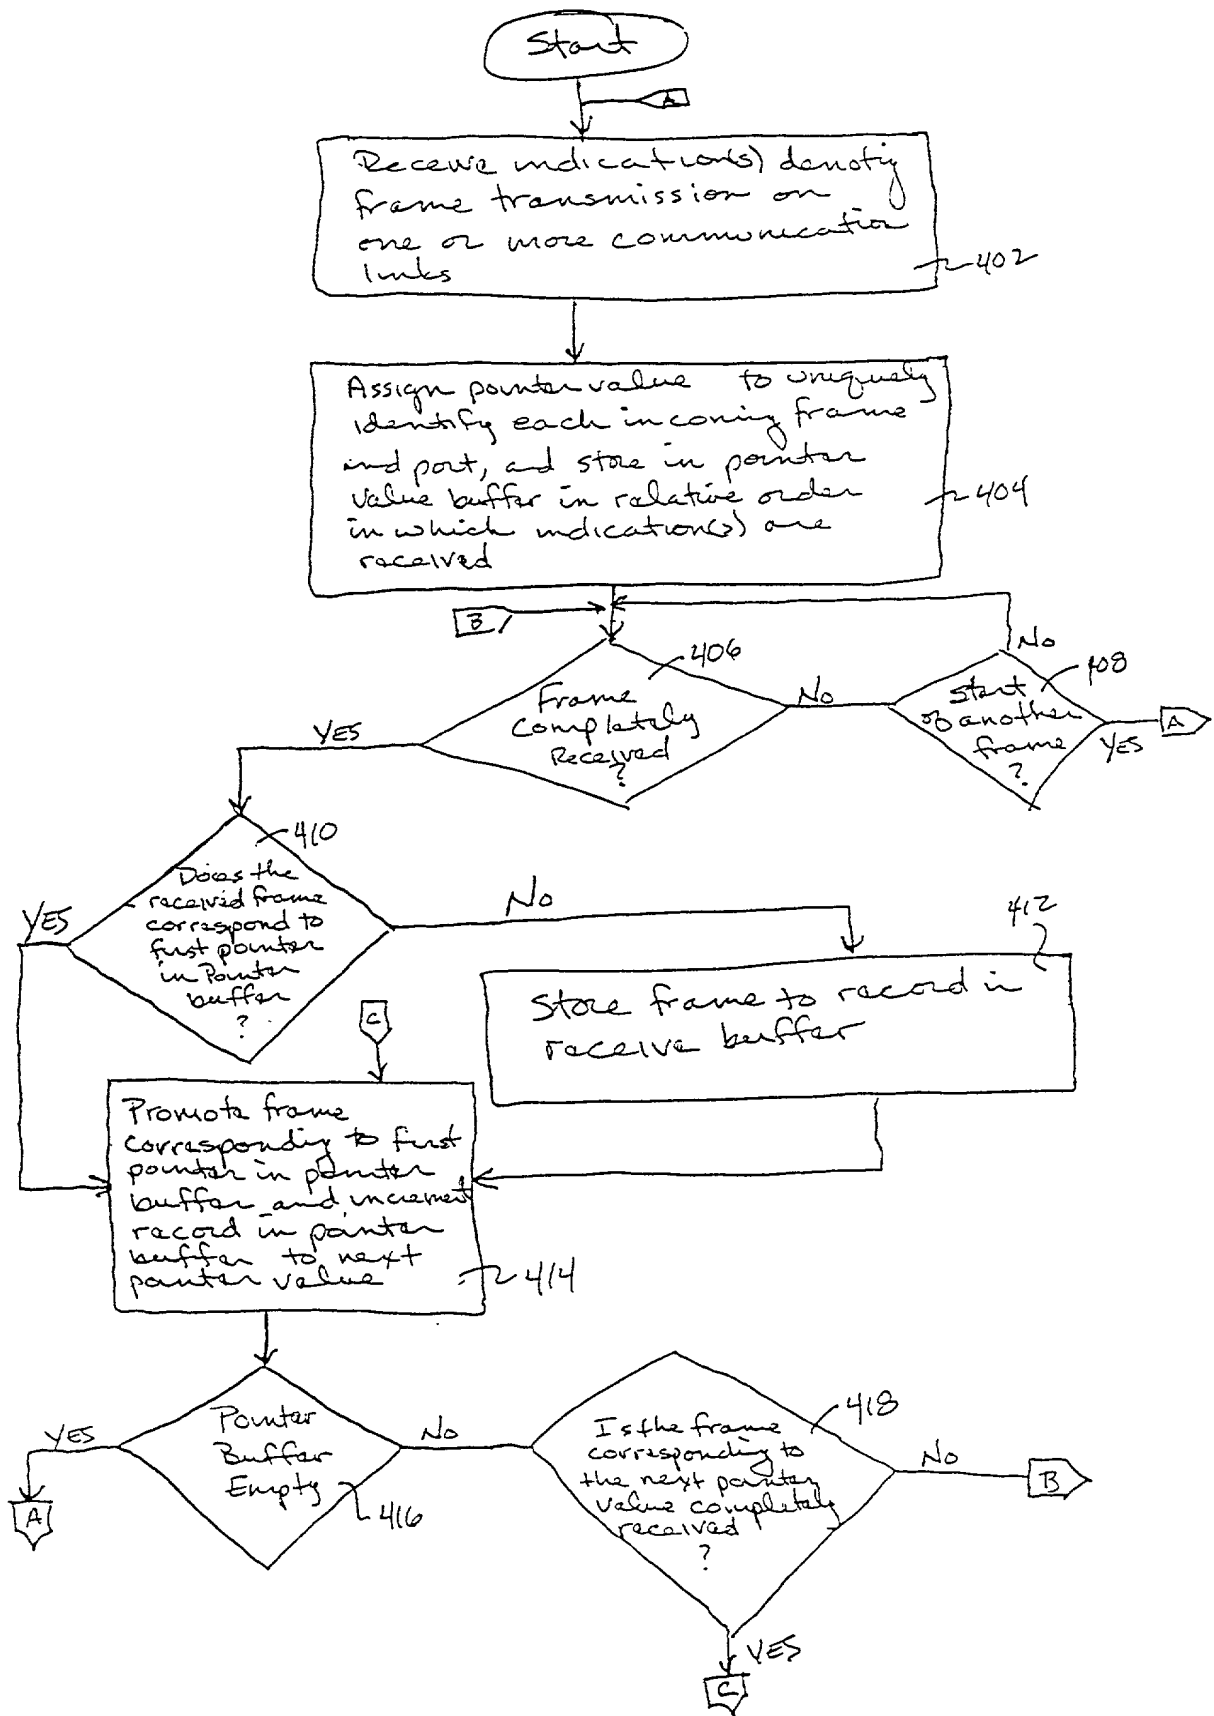 Start
A
Receive indication(s) denoting
frame transmission on
one or more communication
links
402
Assign pointer value to uniquely
identify each incoming frame
and port, and store in pointer
value buffer in relative order
in which indication(s) are
received
404
B
406
Frame
Completely
Received
?
No
No
408
Start
of another
frame
?
YES
A
YES
410
Does the
received frame
correspond to
first pointer
in Pointer
buffer
?
YES
No
412
Store frame to record in
receive buffer
C
Promote frame
corresponding to first
pointer in pointer
buffer and increment
record in pointer
buffer to next
pointer value
414
Pointer
Buffer
Empty
416
YES
A
No
418
Is the frame
corresponding to
the next pointer
value completely
received
?
No
B
YES
C